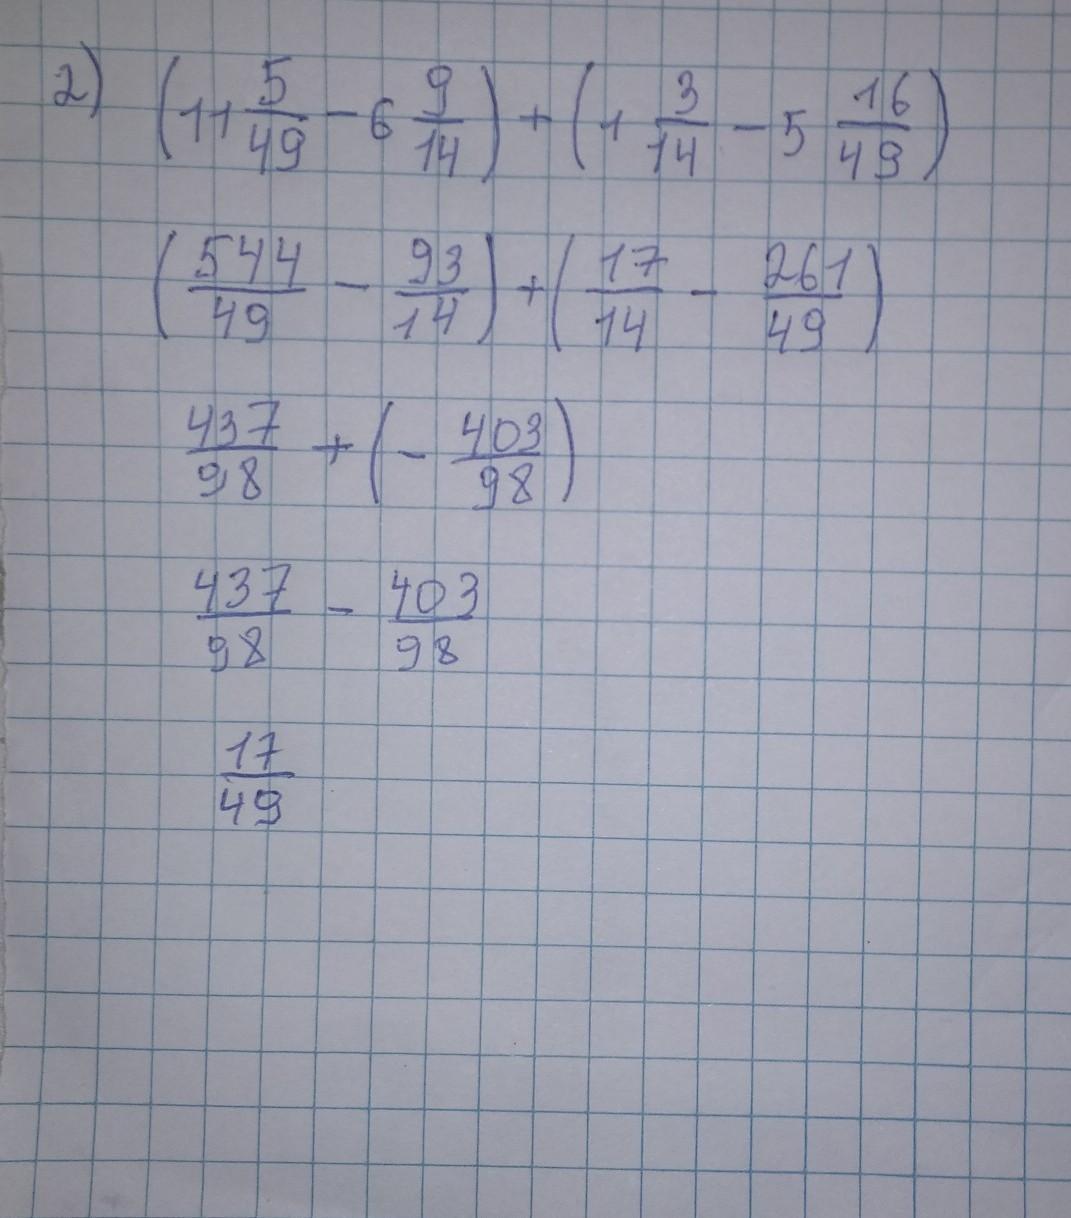 2) (11 5/49 - 6 9/14) + (1 3/14 - 5 16/49)
(544/49 - 93/14) + (17/14 - 261/49)
437/98 + (- 403/98)
437/98 - 403/98
17/49